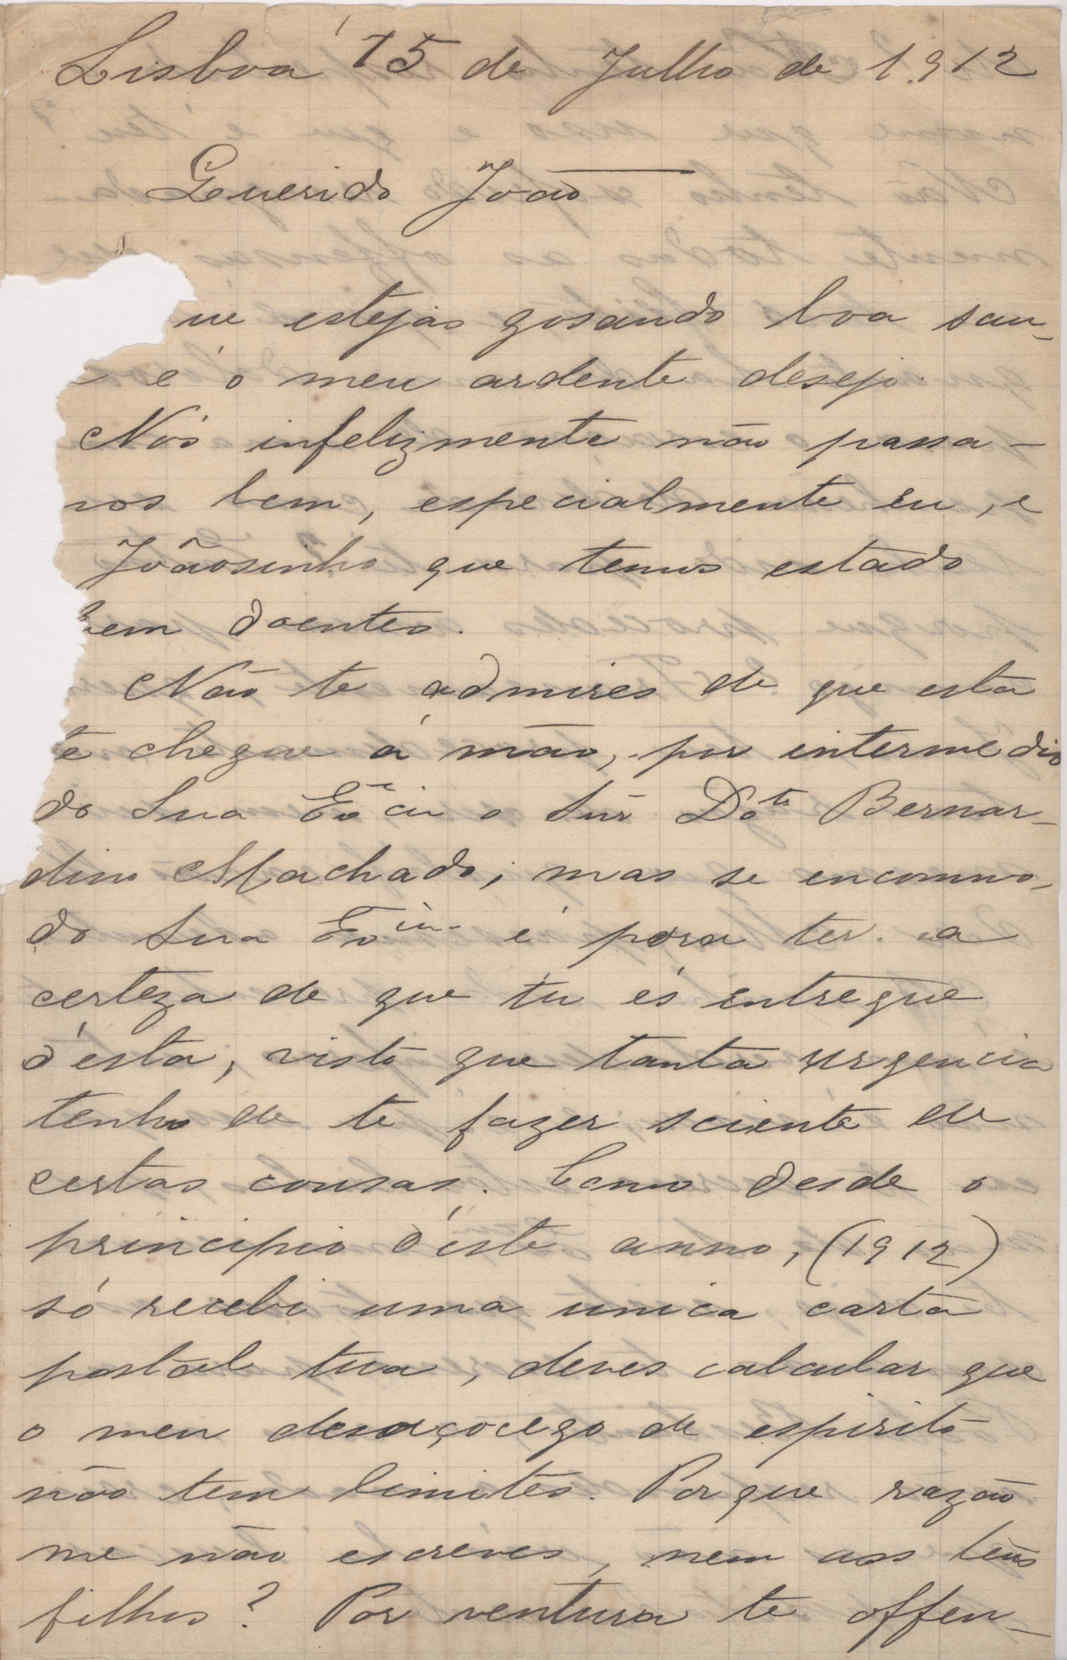 Lisboa 15 de Julho de 1912
Querido João
ue estejas gosando boa sau-
e é o meu ardente desejo.
Nós infelizmente não passa-
mos bem, especialmente eu, e
Joãosinho que temos estado
bem doentes.
Não te admires de que esta
te chegue á mão, por intermedio
do Sua Exª cia o Snr. Dotr Bernar-
dino Machado; mas se encommo-
do Sua Excia é para ter a
certeza de que tu és entregue
d'esta, visto que tanta urgencia
tenho de te fazer sciente de
certas cousas. Como desde o
principio d'este anno, (1912)
só recebi uma unica carta
postal tua, deves calcular que
o meu desaçocego de espirito
não tem limites. Por que razão
me não escreves, nem aos teus
filhos? Por ventura te offen-